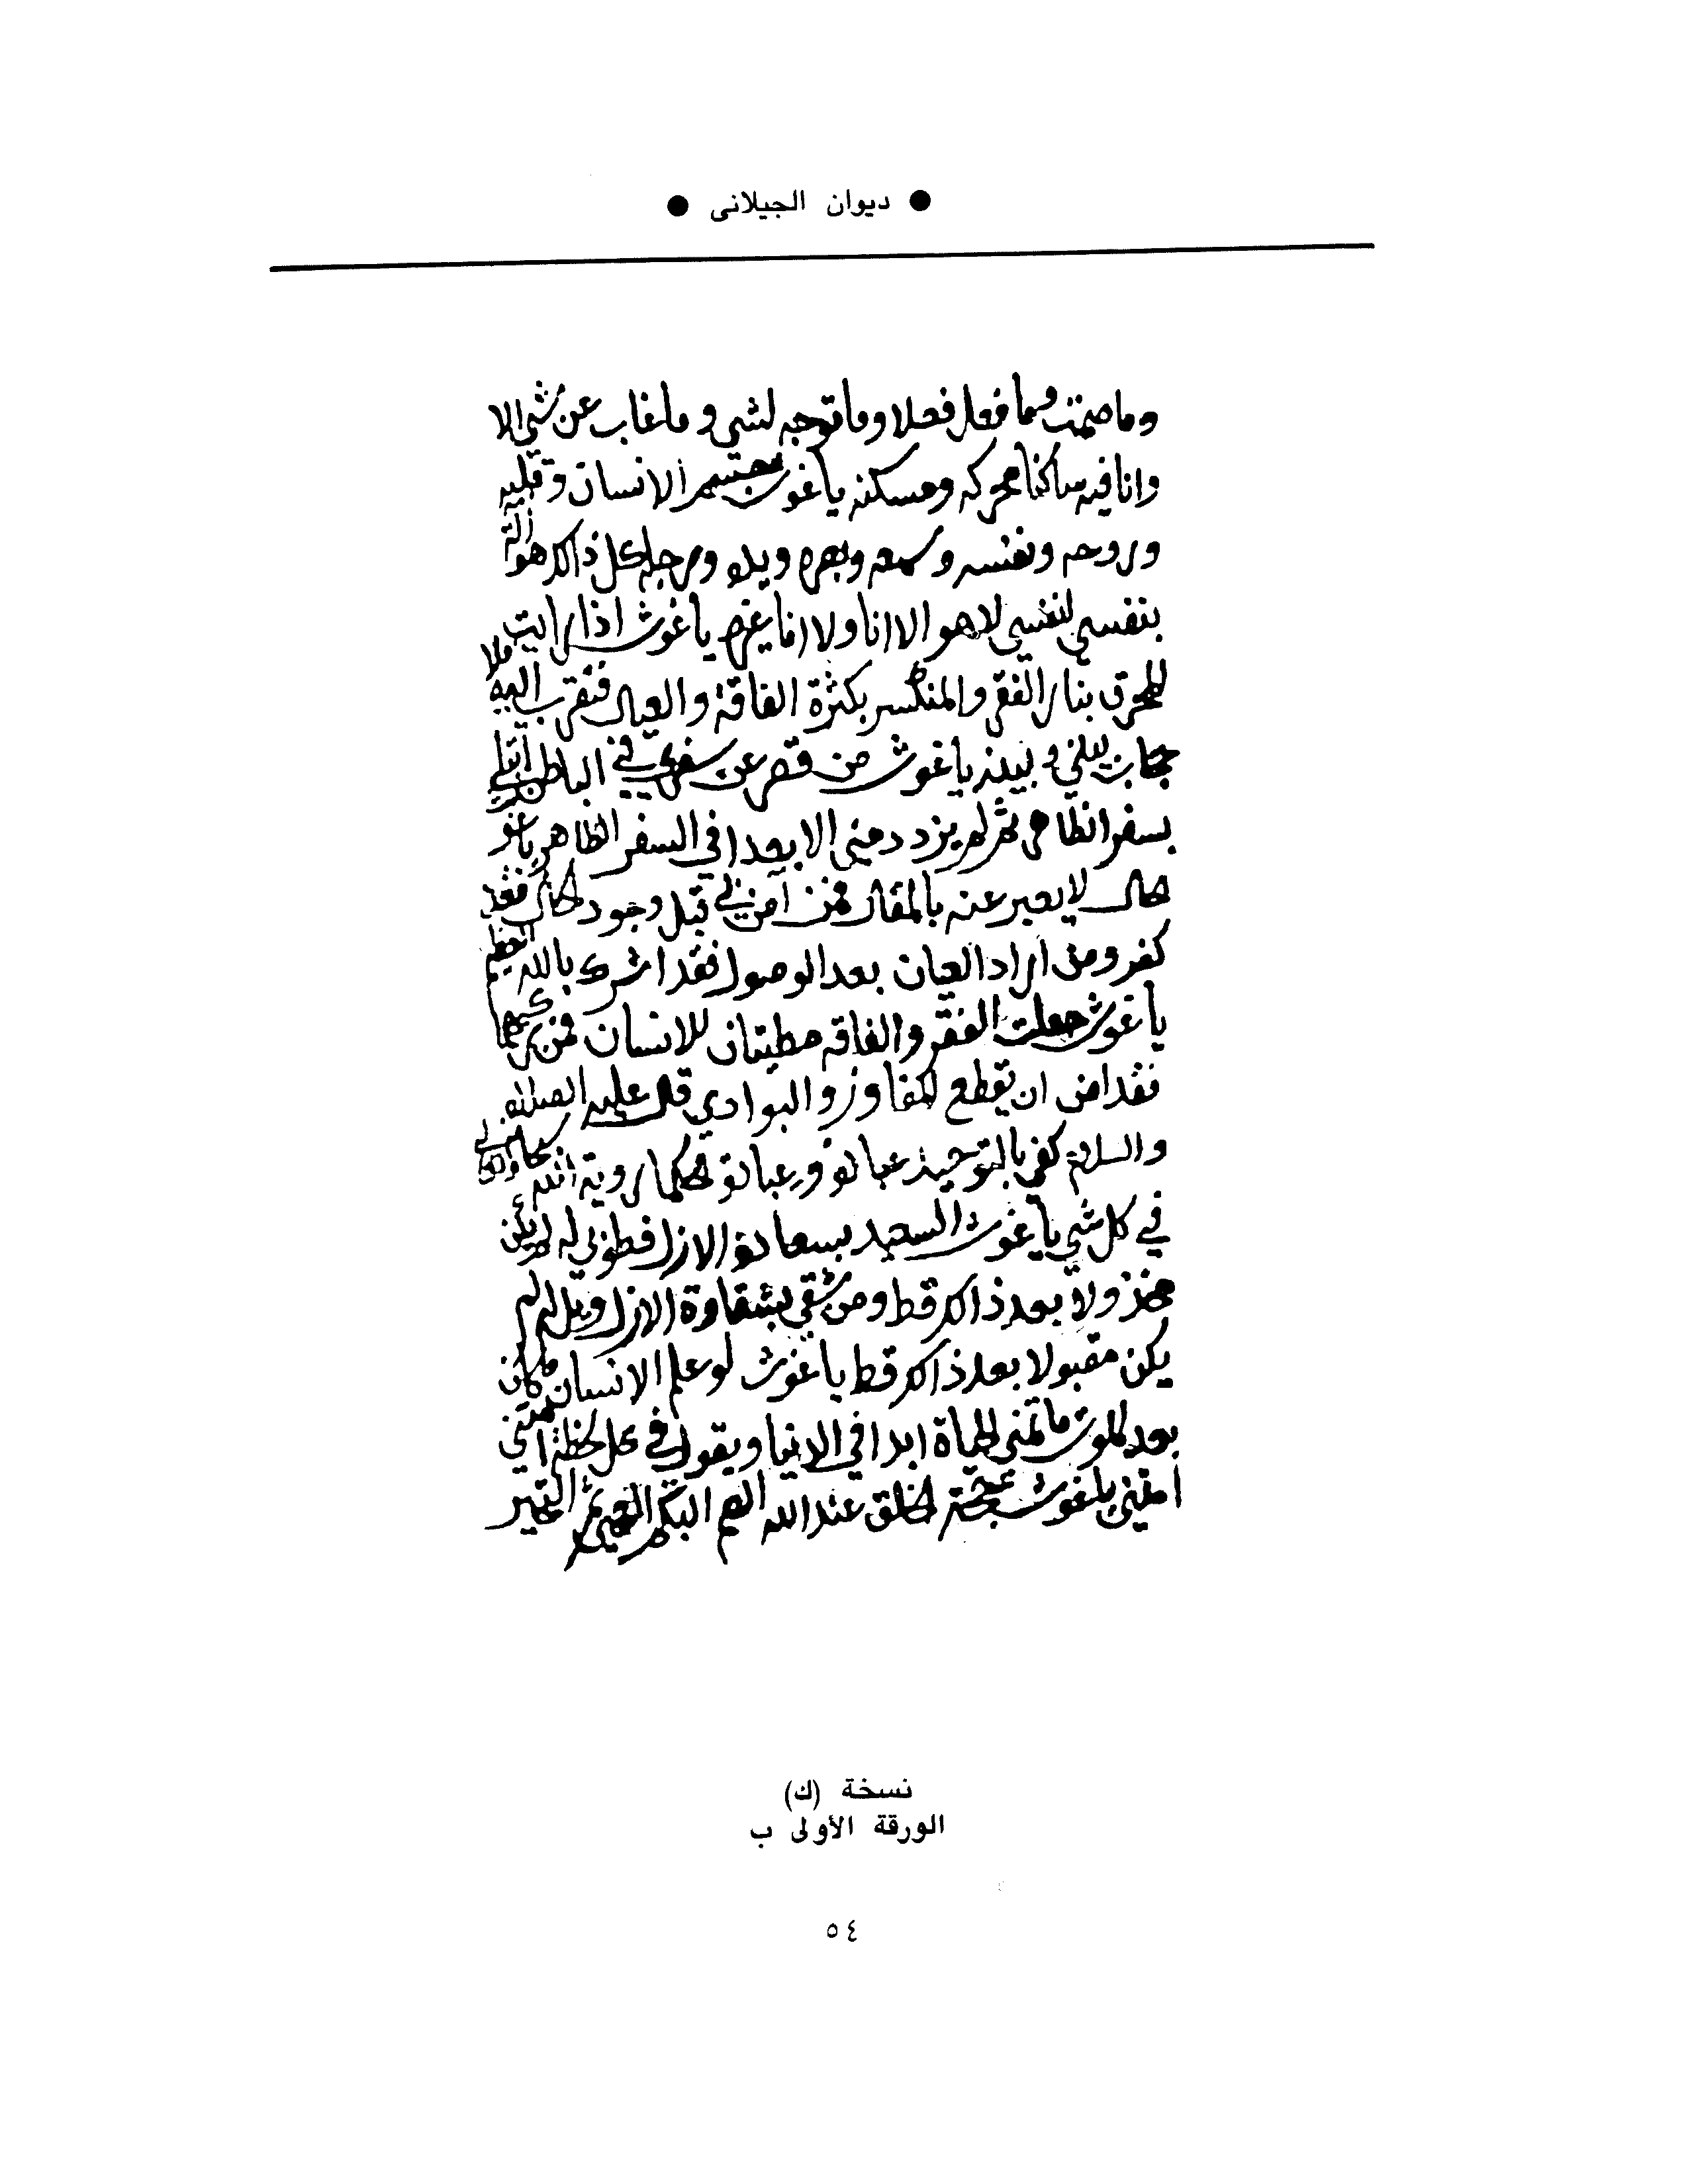 ● ديوان الجيلانى ●
وما صمت وما فعل فعلا وما توجه لشي وما غاب عن شي الا
وانا فيه ساكنا محركه ومسكنه يا غوث جسم الانسان وقلبه
وروحه ونفسه وسمعه وبصره ويده ورجله كل ذالك هو
بنفسي لنفسي لا هو الا انا ولا انا غيره يا غوث اذا رايت
المحرق بنار الفقر والمنكسر بكثرة الفاقة والعيال فتقرب اليه فلا
حجاب بيني وبينه يا غوث من قصر عن سفري في الباطن ابتلي
بسفر الظاهر ثم لم يزدد مني الا بعدا في السفر الظاهر يا غو
حال لا يعبر عنه بالمقال فمن آمن قبل وجود الحال فقد
كفر ومن اراد العيان بعد الوصول فقد اشرك بالله العظيم
يا غوث جعلت الفقر والفاقه مطيتان للانسان فمن
فقد ان يقطع المفاوز والبوادي قال عليه الصلاه
والسلام كفي بالتوحيد عبادة رويه الله
في كل شي يا غوث السعيد بسعادة الازل فطوبي له لم يكن
مخذولا بعد ذالك قط ومن شقي بشقاوة الازل ويل له لم
يكن مقبولا بعد ذالك قط يا غوث لو علم الانسان ما كان
بعد الموت ما تمني الحياة ابدا في الدنيا ويقول في كل لحظة امتني
امتني يا غوث حجة الخلق عند الله الصم البكم العمي ثم التحير
نسخة (ك)
الورقة الأولى ب
٥٤